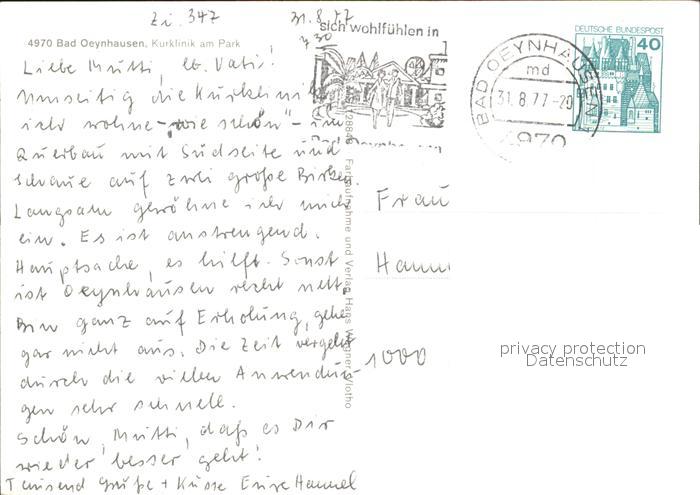 Zi. 347
31.8.77
sich wohlfühlen in
DEUTSCHE BUNDESPOST
40
4970 Bad Oeynhausen, Kurklinik am Park
BAD OEYNHAUSEN 1
md
31.8.77-20
4970
Liebe Mutti, lb. Vati!
Umseitig die Kurklinik
ich wohne - "wie schön" - im
Querbau mit Südseite und
schaue auf zwei große Birken.
Langsam gewöhne ich mich
ein. Es ist anstrengend.
Hauptsache, es hilft. Sonst
ist Oeynhausen recht nett.
Bin ganz auf Erholung, gehe
gar nicht aus. Die Zeit vergeht
durch die vielen Anwendun-
gen sehr schnell.
Schön, Mutti, daß es Dir
wieder besser geht!
Tausend Grüße + Küsse Hammel
Farbaufnahme und Verlag Hans Wagner, Vlotho
Frau
1000
privacy protection
Datenschutz